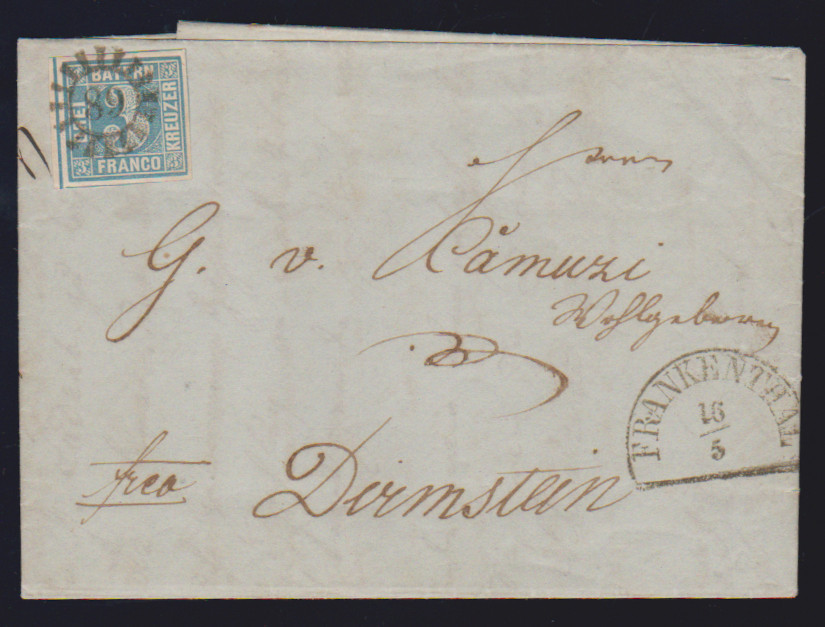 BAYERN
DREI
3
KREUZER
FRANCO
89
Herrn
G. v. Camuzi
Wohlgeboren
Dirmstein
frco
FRANKENTHAL
16
5